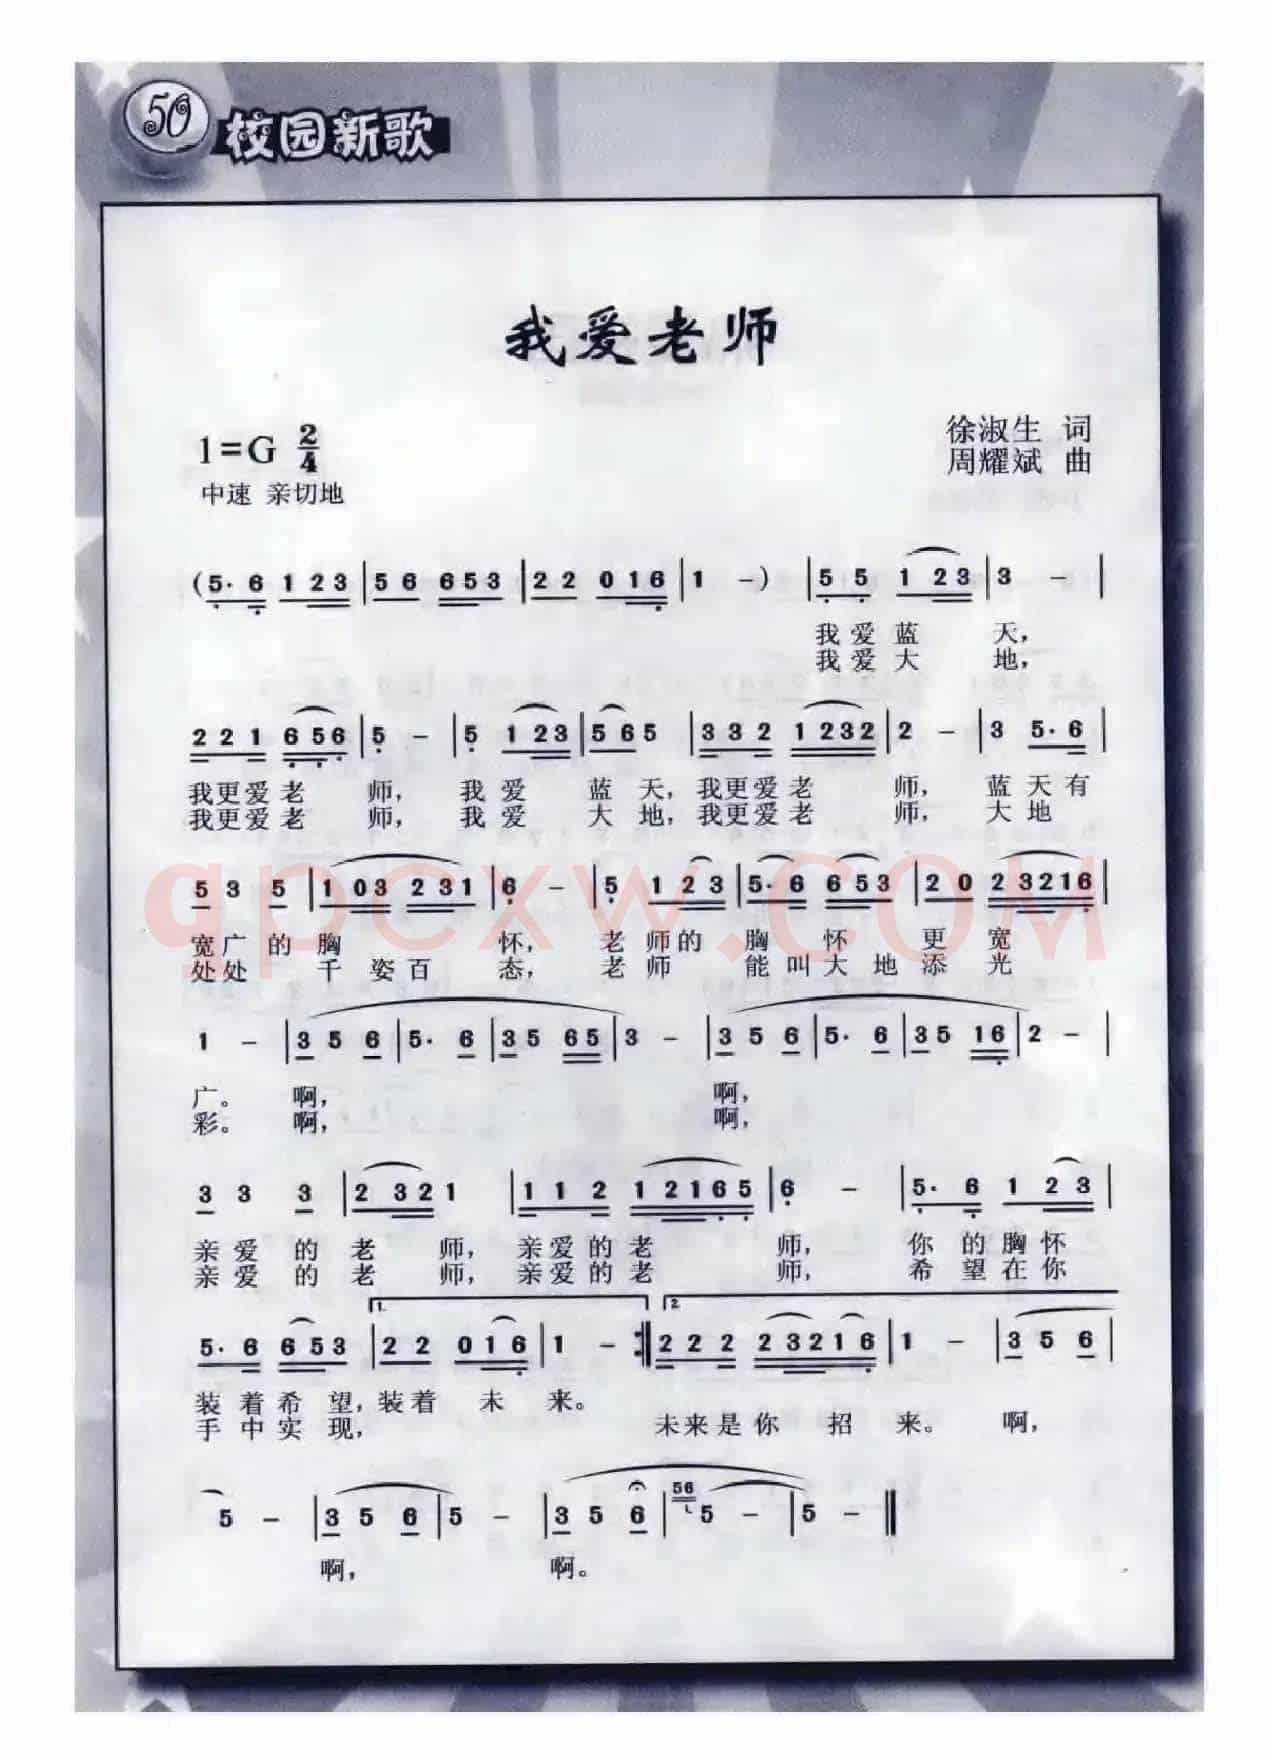 50 校园新歌
我爱老师
1=G 2/4
徐淑生 词
周耀斌 曲
中速 亲切地
(5· 6 1 2 3 | 5 6 6 5 3 | 2 2 0 1 6 | 1 -) | 5 5 1 2 3 | 3 - |
我爱蓝 天,
我爱大 地,
2 2 1 6 5 6 | 5 - | 5 1 2 3 | 5 6 5 | 3 3 2 1 2 3 2 | 2 - | 3 5· 6 |
我更爱老 师, 我爱 蓝天,我更爱老 师, 蓝天有
我更爱老 师, 我爱 大地,我更爱老 师, 大地
5 3 5 | 1 0 3 2 3 1 | 6 - | 5 1 2 3 | 5· 6 6 5 3 | 2 0 2 3 2 1 6 |
宽广的胸 怀, 老师的胸怀 更宽
处处 千姿百 态, 老师 能叫大地添光
1 - | 3 5 6 | 5· 6 | 3 5 6 5 | 3 - | 3 5 6 | 5· 6 | 3 5 1 6 | 2 - |
广。 啊, 啊,
彩。 啊, 啊,
3 3 3 | 2 3 2 1 | 1 1 2 1 2 1 6 5 | 6 - | 5· 6 1 2 3 |
亲爱的老 师, 亲爱的老 师, 你的胸怀
亲爱的老 师, 亲爱的老 师, 希望在你
1. 2.
5· 6 6 5 3 | 2 2 0 1 6 | 1 - :‖ 2 2 2 2 3 2 1 6 | 1 - | 3 5 6 |
装着希望,装着 未 来。
手中实现, 未来是你 招 来。 啊,
5 - | 3 5 6 | 5 - | 3 5 6 | 56 5 - | 5 - ‖
啊, 啊。
qpcxw.COM